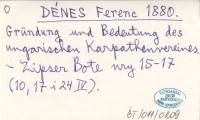 O
DÉNES Ferenc 1880.
Gründung und Bedeutung des
ungarischen Karpathenvereines.
- Zipser Bote nry 15-17
(10, 17 i 24 IV).
BT/1011/0209